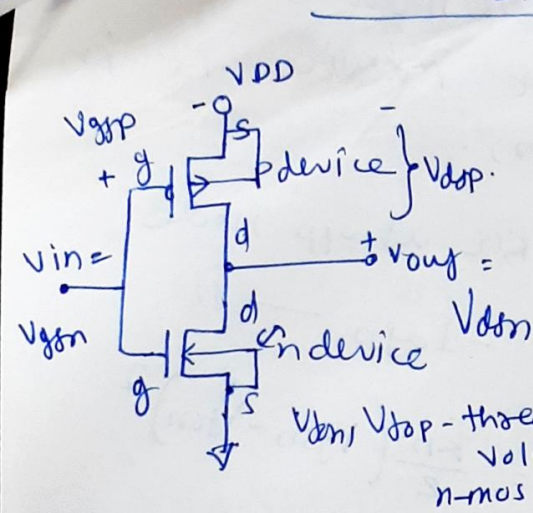 VDD
- s
Vgsp
+ g
p device } Vdsp.
-
d
Vin =
+ Vout =
Vgsn
d
Vdsn
n device
g
s
Vtop - thre
vol
n-mos